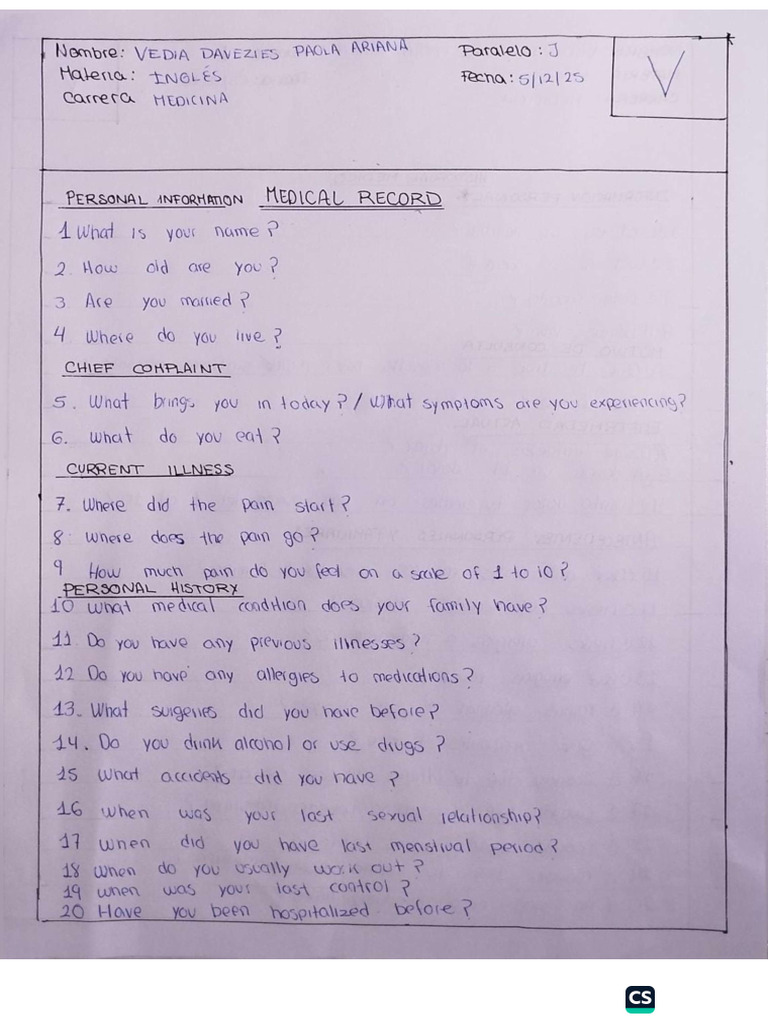 Nombre: VEDIA DAVEZIES PAOLA ARIANA
Paralelo: J
V
Materia: INGLÉS
Fecha: 5/12/25
Carrera MEDICINA
PERSONAL INFORMATION MEDICAL RECORD
1 What is your name?
2. How old are you?
3 Are you married?
4 Where do you live?
CHIEF COMPLAINT
5. What brings you in today? / What symptoms are you experiencing?
6. What do you eat?
CURRENT ILLNESS
7. Where did the pain start?
8 Where does the pain go?
9 How much pain do you feel on a scale of 1 to 10?
PERSONAL HISTORY
10 What medical condition does your family have?
11 Do you have any previous illnesses?
12 Do you have any allergies to medications?
13. What surgeries did you have before?
14. Do you drink alcohol or use drugs?
15 What accidents did you have?
16 When was your last sexual relationship?
17 When did you have last menstrual period?
18 When do you usually work out?
19 when was your last control?
20 Have you been hospitalized before?
CS